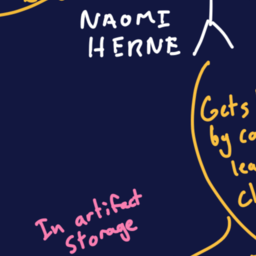 NAOMI
HERNE
Gets
by
In artifact
Storage